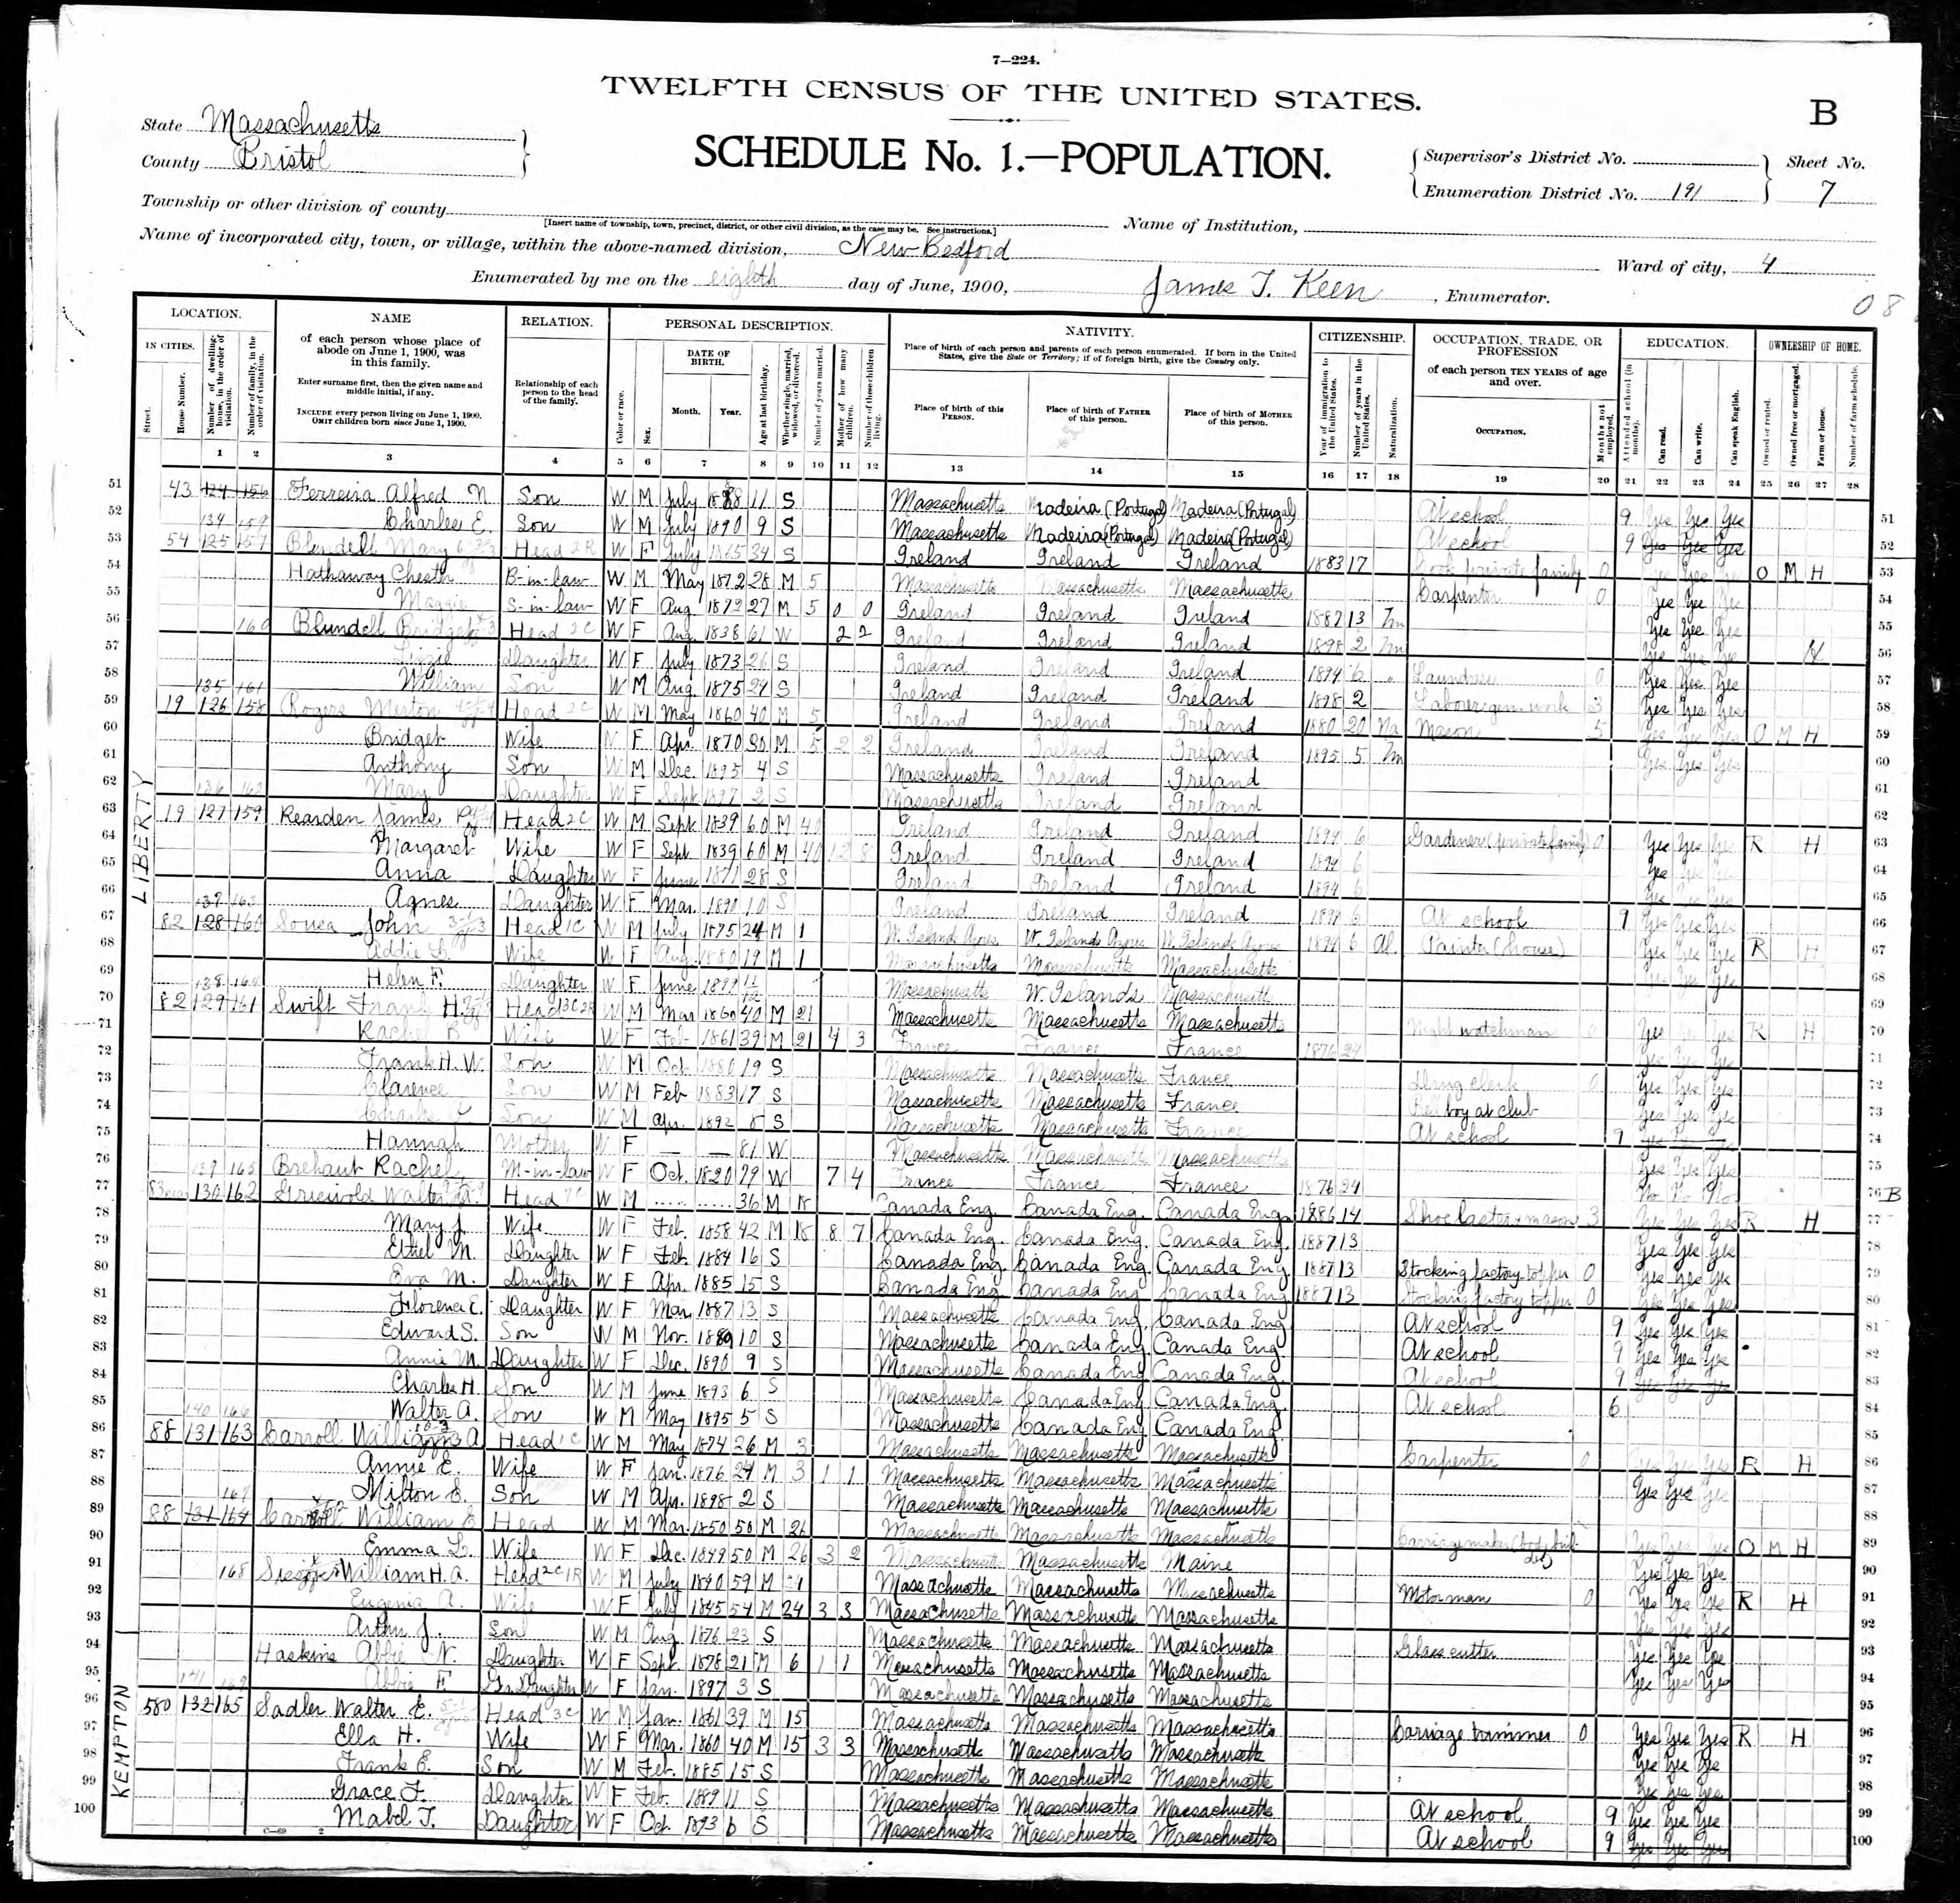 7—224.
TWELFTH CENSUS OF THE UNITED STATES.
B
State Massachusetts
County Bristol
SCHEDULE No. 1.—POPULATION.
Supervisor's District No.
Enumeration District No. 191
Sheet No.
7
Township or other division of county
[Insert name of township, town, precinct, district, or other civil division, as the case may be. See instructions.]
Name of Institution,
Name of incorporated city, town, or village, within the above-named division, New Bedford
Ward of city, 4
Enumerated by me on the eighth day of June, 1900, James T. Keen, Enumerator.
08
LOCATION. NAME RELATION. PERSONAL DESCRIPTION. NATIVITY. CITIZENSHIP. OCCUPATION, TRADE, OR PROFESSION EDUCATION. OWNERSHIP OF HOME.
IN CITIES. Street. House Number. Number of dwelling-house, in the order of visitation. Number of family, in the order of visitation.
of each person whose place of abode on June 1, 1900, was in this family.
Enter surname first, then the given name and middle initial, if any.
INCLUDE every person living on June 1, 1900. OMIT children born since June 1, 1900.
Relationship of each person to the head of the family.
Color or race. Sex. DATE OF BIRTH. Month. Year. Age at last birthday. Whether single, married, widowed, or divorced. Number of years married. Mother of how many children. Number of these children living.
Place of birth of each person and parents of each person enumerated. If born in the United States, give the State or Territory; if of foreign birth, give the Country only.
Place of birth of this PERSON. Place of birth of FATHER of this person. Place of birth of MOTHER of this person.
Year of immigration to the United States. Number of years in the United States. Naturalization.
of each person TEN YEARS of age and over.
OCCUPATION. Months not employed.
Attended school (in months). Can read. Can write. Can speak English.
Owned or rented. Owned free or mortgaged. Farm or house. Number of farm schedule.
1 2 3 4 5 6 7 8 9 10 11 12 13 14 15 16 17 18 19 20 21 22 23 24 25 26 27 28
LIBERTY
KEMPTON
51 43 124 156 Ferreira Alfred N Son W M July 1888 11 S Massachusetts Madeira (Portugal) Madeira (Portugal) At school 9 Yes Yes Yes 51
52 134 159 Charles E. Son W M July 1890 9 S Massachusetts Madeira (Portugal) Madeira (Portugal) At school 9 Yes Yes Yes 52
53 54 125 157 Blundell Mary Head 2R W F July 1865 34 S Ireland Ireland Ireland 1883 17 Cook private family 0 O M H 53
54 Hathaway Chester B-in-law W M May 1872 28 M 5 Massachusetts Massachusetts Massachusetts Carpenter 0 Yes Yes Yes 54
55 Maggie S-in-law W F Aug 1872 27 M 5 0 0 Ireland Ireland Ireland 1887 13 Yes Yes Yes 55
56 160 Blundell Bridget Head 2C W F Aug 1838 61 W 2 2 Ireland Ireland Ireland 1898 2 H 56
57 Lizzie Daughter W F July 1873 26 S Ireland Ireland Ireland 1894 6 Laundress 0 Yes Yes Yes 57
58 135 161 William Son W M Aug 1875 24 S Ireland Ireland Ireland 1898 2 Laborer gen. work 3 Yes Yes Yes 58
59 19 126 158 Rogers Head 2C W M May 1860 40 M 5 Ireland Ireland Ireland 1880 20 Na Mason 5 Yes Yes Yes O M H 59
60 Bridget Wife W F Apr. 1870 30 M 5 2 2 Ireland Ireland Ireland 1895 5 Yes Yes Yes 60
61 Anthony Son W M Dec. 1895 4 S Massachusetts Ireland Ireland 61
62 136 162 Mary Daughter W F Sept 1897 2 S Massachusetts Ireland Ireland 62
63 19 127 159 Rearden James Head 2C W M Sept 1839 60 M 40 Ireland Ireland Ireland 1894 6 Gardener (private family) 0 Yes Yes Yes R H 63
64 Margaret Wife W F Sept 1839 60 M 40 12 8 Ireland Ireland Ireland 1894 6 Yes Yes Yes 64
65 Anna Daughter W F June 1871 28 S Ireland Ireland Ireland 1894 6 Yes Yes Yes 65
66 137 163 Agnes Daughter W F Mar. 1890 10 S Ireland Ireland Ireland 1894 6 At school 9 Yes Yes Yes 66
67 82 128 160 Sousa John Head 1C W M July 1875 24 M 1 W. Islands Azores W. Islands Azores W. Islands Azores 1894 6 Al Painter (house) Yes Yes Yes R H 67
68 Addie L. Wife W F Aug. 1880 19 M 1 Massachusetts Massachusetts Massachusetts Yes Yes Yes 68
69 138 164 Helen F. Daughter W F June 1899 11/12 Massachusetts W. Islands Massachusetts 69
70 82 129 161 Swift Frank H. Head 3C 2R W M Mar 1860 40 M 21 Massachusetts Massachusetts Massachusetts Night watchman 0 Yes R H 70
71 Rachel B Wife W F Feb 1861 39 M 21 4 3 France France France 1876 24 Yes Yes Yes 71
72 Frank H. W. Son W M Oct 1880 19 S Massachusetts Massachusetts France Drug clerk 0 Yes Yes Yes 72
73 Clarence Son W M Feb 1883 17 S Massachusetts Massachusetts France Bell boy at club Yes Yes Yes 73
74 Charles Son W M Apr. 1892 8 S Massachusetts Massachusetts France At school 9 74
75 Hannah Mother W F 81 W Massachusetts Massachusetts Massachusetts Yes Yes Yes 75
76 139 165 Brehaut Rachel M-in-law W F Oct. 1820 79 W 7 4 France France France 1876 24 No No No 76 B
77 83 rear 130 162 Griswold Walter Head W M 36 M 18 Canada Eng. Canada Eng. Canada Eng. 1886 14 Shoe laster & mason 3 Yes Yes Yes R H 77
78 Mary J. Wife W F Feb. 1858 42 M 18 8 7 Canada Eng. Canada Eng. Canada Eng. 1887 13 Yes Yes Yes 78
79 Ethel M. Daughter W F Feb. 1884 16 S Canada Eng. Canada Eng. Canada Eng. 1887 13 Stocking factory topper 0 Yes Yes Yes 79
80 Eva M. Daughter W F Apr. 1885 15 S Canada Eng Canada Eng Canada Eng 1887 13 Stocking factory topper 0 Yes Yes Yes 80
81 Florence E. Daughter W F Mar. 1887 13 S Massachusetts Canada Eng. Canada Eng At school 9 Yes Yes Yes 81
82 Edward S. Son W M Nov. 1889 10 S Massachusetts Canada Eng Canada Eng. At school 9 Yes Yes Yes 82
83 Annie M. Daughter W F Dec. 1890 9 S Massachusetts Canada Eng Canada Eng. At school 9 Yes Yes Yes 83
84 Charles H. Son W M June 1893 6 S Massachusetts Canada Eng Canada Eng. At school 6 84
85 140 166 Walter A. Son W M May 1895 5 S Massachusetts Canada Eng Canada Eng. 85
86 88 131 163 Carroll William A Head 1C W M May 1874 26 M 3 Massachusetts Massachusetts Massachusetts Carpenter 0 Yes Yes Yes R H 86
87 Annie E. Wife W F Jan. 1876 24 M 3 1 1 Massachusetts Massachusetts Massachusetts Yes Yes Yes 87
88 167 Milton E. Son W M Apr. 1898 2 S Massachusetts Massachusetts Massachusetts 88
89 88 131 164 William E Head W M Mar. 1850 50 M 26 Massachusetts Massachusetts Massachusetts Carriage maker Yes Yes Yes O M H 89
90 Emma L. Wife W F Dec. 1849 50 M 26 3 2 Massachusetts Massachusetts Maine Yes Yes Yes 90
91 168 William H. A. Head 2C 1R W M July 1840 59 M 24 Massachusetts Massachusetts Massachusetts Motorman 0 Yes Yes Yes R H 91
92 Eugenia A. Wife W F July 1845 54 M 24 3 3 Massachusetts Massachusetts Massachusetts Yes Yes Yes 92
93 Arthur J. Son W M Aug 1876 23 S Massachusetts Massachusetts Massachusetts Glass cutter Yes Yes Yes 93
94 Haskins Abbie N. Daughter W F Sept. 1878 21 M 6 1 1 Massachusetts Massachusetts Massachusetts Yes Yes Yes 94
95 141 169 Abbie F Gr Daughter W F Jan. 1897 3 S Massachusetts Massachusetts Massachusetts 95
96 580 132 165 Sadler Walter E. Head 3C W M Jan. 1861 39 M 15 Massachusetts Massachusetts Massachusetts Carriage trimmer 0 Yes Yes Yes R H 96
97 Ella H. Wife W F Mar. 1860 40 M 15 3 3 Massachusetts Massachusetts Massachusetts Yes Yes Yes 97
98 Frank E. Son W M Feb. 1885 15 S Massachusetts Massachusetts Massachusetts Yes Yes Yes 98
99 Grace F. Daughter W F Feb. 1889 11 S Massachusetts Massachusetts Massachusetts At school 9 Yes Yes Yes 99
100 Mabel T. Daughter W F Oct. 1893 6 S Massachusetts Massachusetts Massachusetts At school 9 Yes Yes Yes 100
C—69 2